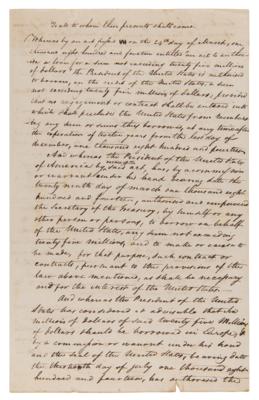 To all to whom these presents shall come.
Whereas by an act passed on the 24th day of March, one
thousand eight hundred and fourteen entitled an act to author-
ise a loan for a sum not exceeding twenty five millions
of dollars" the President of the United States is authorised
to borrow, on the credit of the United States, a sum
not exceeding twenty five millions of dollars, provided
that no engagement or contract shall be entered into
which shall preclude the United States from reimburs-
ing any sum or sums thus borrowed, at any time after
the expiration of twelve years from the last day of
december, one thousand eight hundred and fourteen
And whereas the President of the United States
of America by
or warrant under his hand bearing date the
twenty ninth day of march one thousand eight
hundred and fourteen, authorised and empowered
the Secretary of the Treasury, by himself or any
other person or persons, to borrow on behalf
of the United States, any sum not exceeding
twenty five millions, and to make or cause to
be made, for that purpose, such contract or
contracts, pursuant to the provisions of the
law above mentioned, as shall be necessary
and for the interest of the United States.
And whereas the President of the United
States has considered it advisable that six
millions of dollars of said twenty five Millions
of dollars should be borrowed in Europe &
by a commission or warrant under his hand
and the seal of the United States, bearing date
the day of july one thousand eight
hundred and fourteen, has authorised the